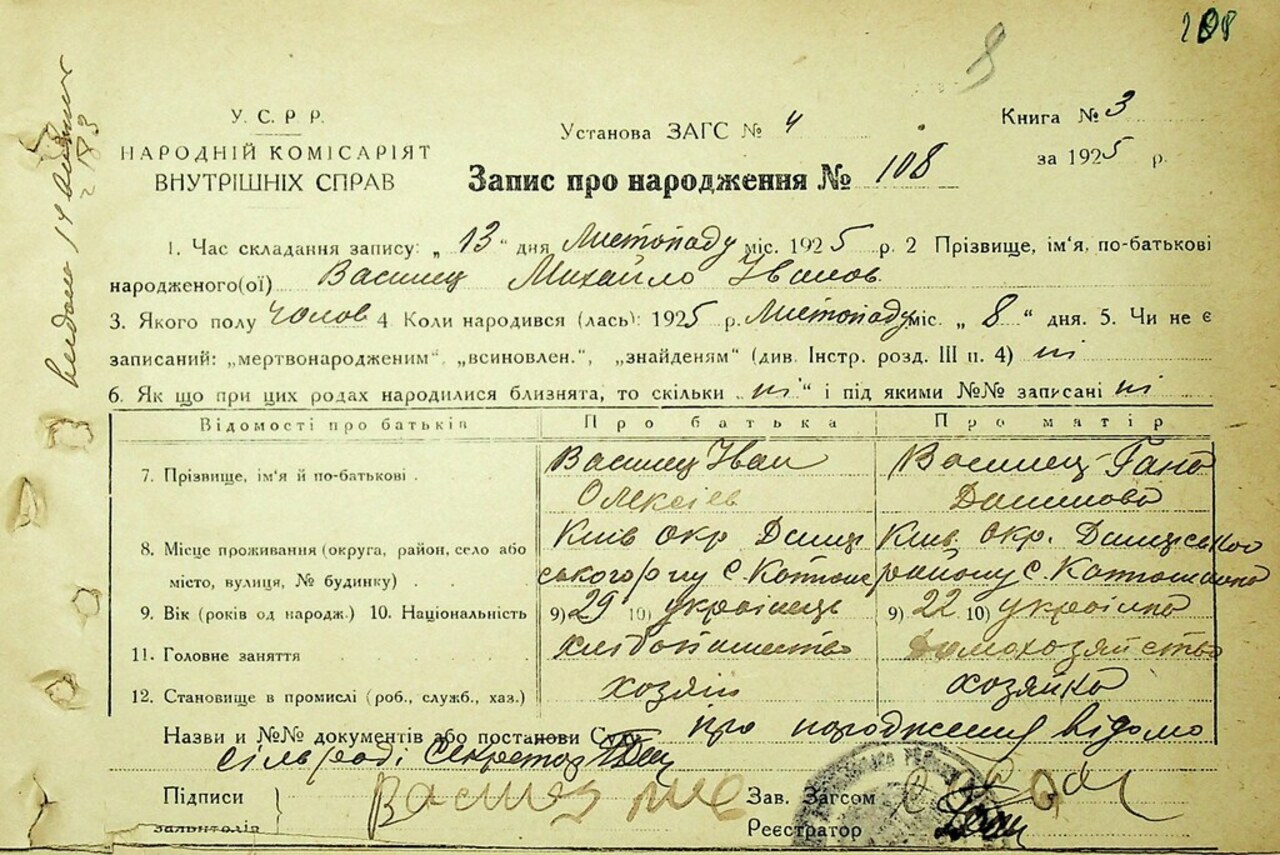 108
У. С. Р. Р.
НАРОДНІЙ КОМІСАРІЯТ
ВНУТРІШНІХ СПРАВ
Установа ЗАГС № 4
Книга № 3
за 1925 р.
Запис про народження № 108
1. Час складання запису: „ 13 “ дня Листопаду міс. 1925 р. 2 Прізвище, ім'я, по-батькові
народженого(ої) Василец Михайло Іванов.
3. Якого полу чолов 4 Коли народився (лась): 1925 р. Листопаду міс. „ 8 “ дня. 5. Чи не є
записаний: „мертвонародженим“, „всиновлен.“, „знайденям“ (див. Інстр. розд. III п. 4) ні
6. Як що при цих родах народилися близнята, то скільки „ ні “ і під якими №№ записані ні
Відомості про батьків Про батька Про матір
7. Прізвище, ім'я й по-батькові . Василец Іван Василец Гана
Олексієв
8. Місце проживання (округа, район, село або Київ Окр Київ. Окр.
місто, вулиця, № будинку) . ського р-ну С. району С.
9. Вік (років од народж.) 10. Національність 9) 29 10) українець 9) 22 10) українка
11. Головне заняття хлібопашество домохозяйство
12. Становище в промислі (роб., служб., хаз.) хозяїн хозяйка
Назви и №№ документів або постанови Суду про народження відомо
сільраді Секретар
Підписи Зав. Загсом
Реєстратор